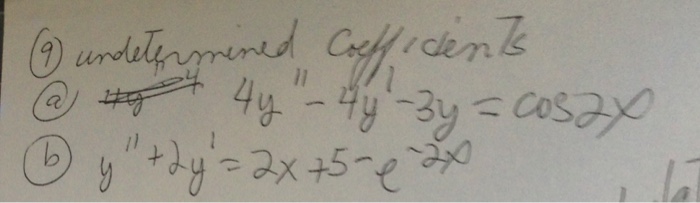 9 undetermined Coefficients
a 4y" - 4y' - 3y = cos2x
b y" + 2y' = 2x + 5 - e^-2x